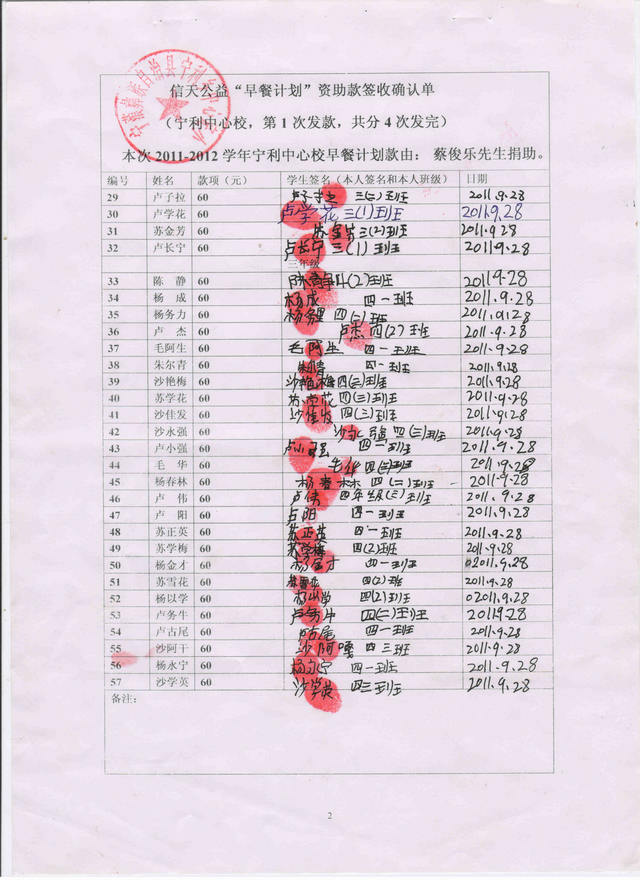 信天公益“早餐计划”资助款签收确认单
（宁利中心校，第1次发款，共分4次发完）
本次2011-2012学年宁利中心校早餐计划款由： 蔡俊乐先生捐助。
编号 姓名 款项（元） 学生签名（本人签名和本人班级） 日期
29 卢子拉 60 三(二)班 2011.9.28
30 卢学花 60 卢学花 三(1)班 2011.9.28
31 苏金芳 60 三(2)班 2011.9.28
32 卢长宁 60 卢长宁 三(1)班 2011.9.28
三年级
33 陈 静 60 陈静 四(2)班 2011.9.28
34 杨 成 60 杨成 四一班 2011.9.28
35 杨务力 60 四(二)班 2011.9.28
36 卢 杰 60 卢杰 四(2)班 2011.9.28
37 毛阿生 60 毛阿生 四一班 2011.9.28
38 朱尔青 60 四一班 2011.9.28
39 沙艳梅 60 沙艳梅 四(三)班 2011.9.28
40 苏学花 60 四(三)班 2011.9.28
41 沙佳发 60 沙佳发 四(三)班 2011.9.28
42 沙永强 60 沙永强 四(三)班 2011.9.28
43 卢小强 60 卢小强 四一班 2011.9.28
44 毛 华 60 毛华 四(三)班 2011.9.28
45 杨春林 60 杨春林 四(二)班 2011.9.28
46 卢 伟 60 四年级(三)班 2011.9.28
47 卢 阳 60 卢阳 四一班 2011.9.28
48 苏正英 60 苏正英 四一班 2011.9.28
49 苏学梅 60 苏学梅 四(2)班 2011.9.28
50 杨金才 60 杨金才 四一班 2011.9.28
51 苏雪花 60 四(2)班 2011.9.28
52 杨以学 60 杨以学 四(2)班 2011.9.28
53 卢务牛 60 卢务牛 四(二)班 2011.9.28
54 卢古尾 60 卢古尾 四一班 2011.9.28
55 沙阿干 60 沙阿嘎 四一班 2011.9.28
56 杨永宁 60 杨永宁 四一班 2011.9.28
57 沙学英 60 沙学英 四三班 2011.9.28
备注：
2